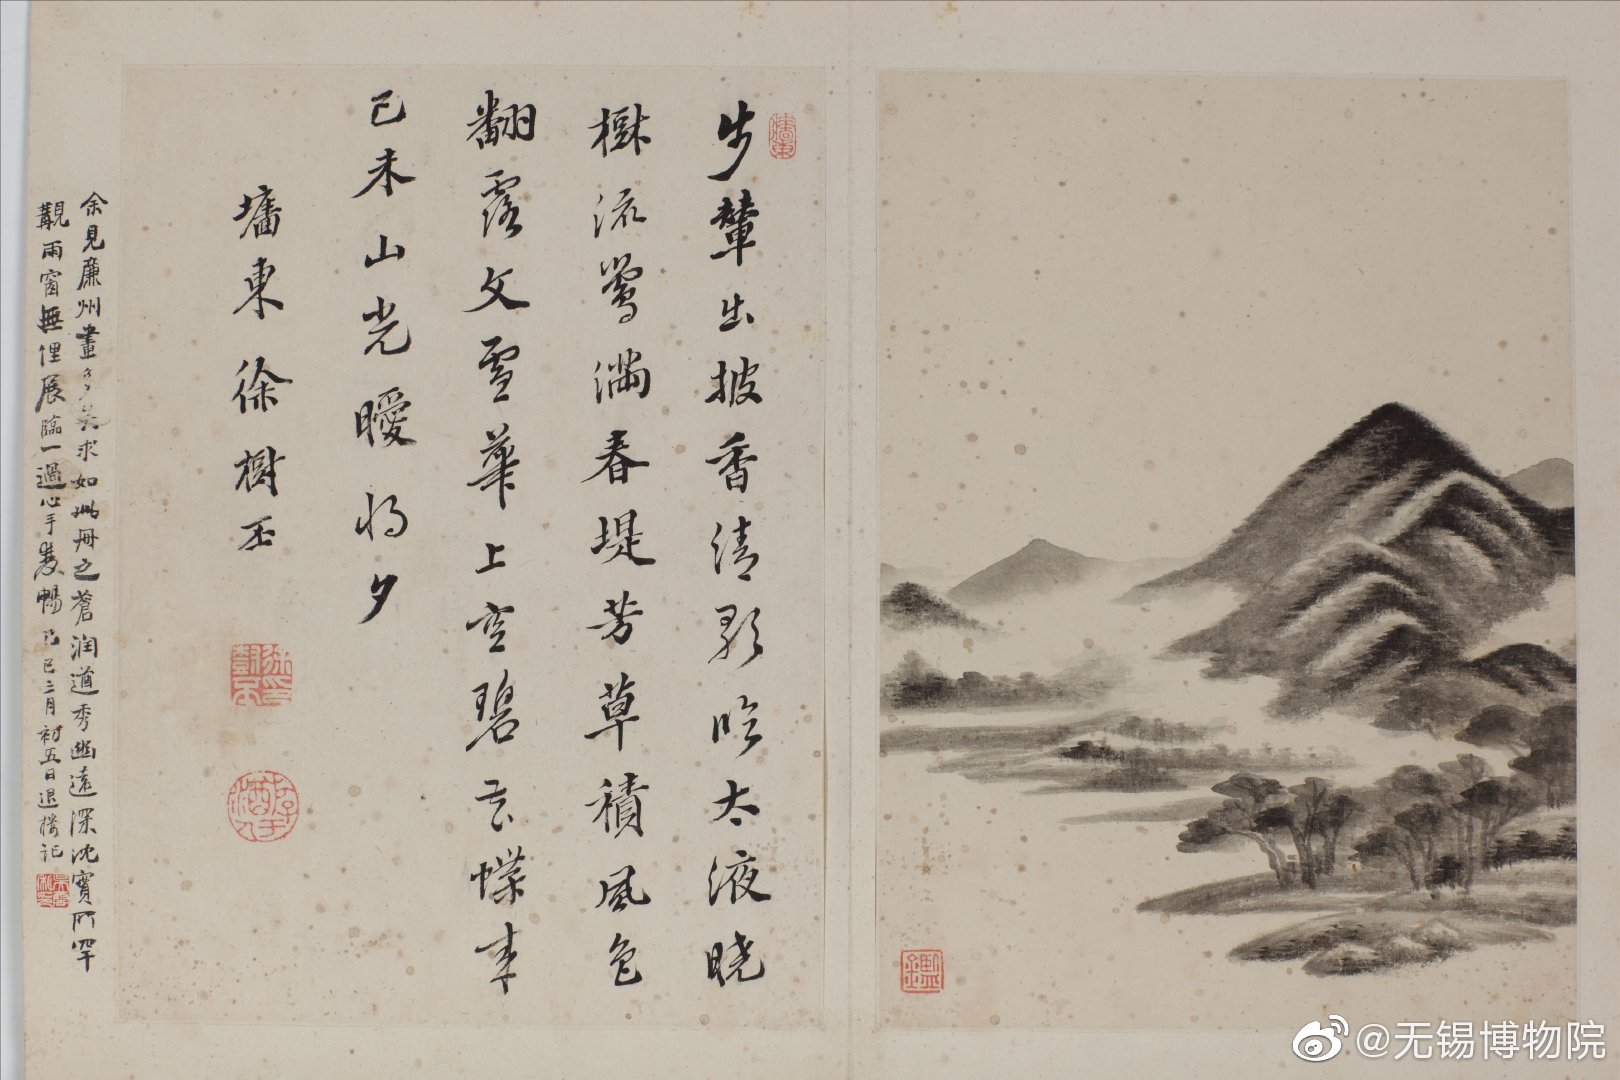 步輦出披香清歌臨太液曉
樹流鶯滿春堤芳草積風色
翻露文雪華上空碧花蝶來
已未山光曖將夕
墻東徐樹丕
余見廉州畫多矣求如此冊之蒼潤遒秀幽遠深沈實所罕
覯雨窗無俚展臨一過心手雙暢己巳二月初五日退樓記
@无锡博物院